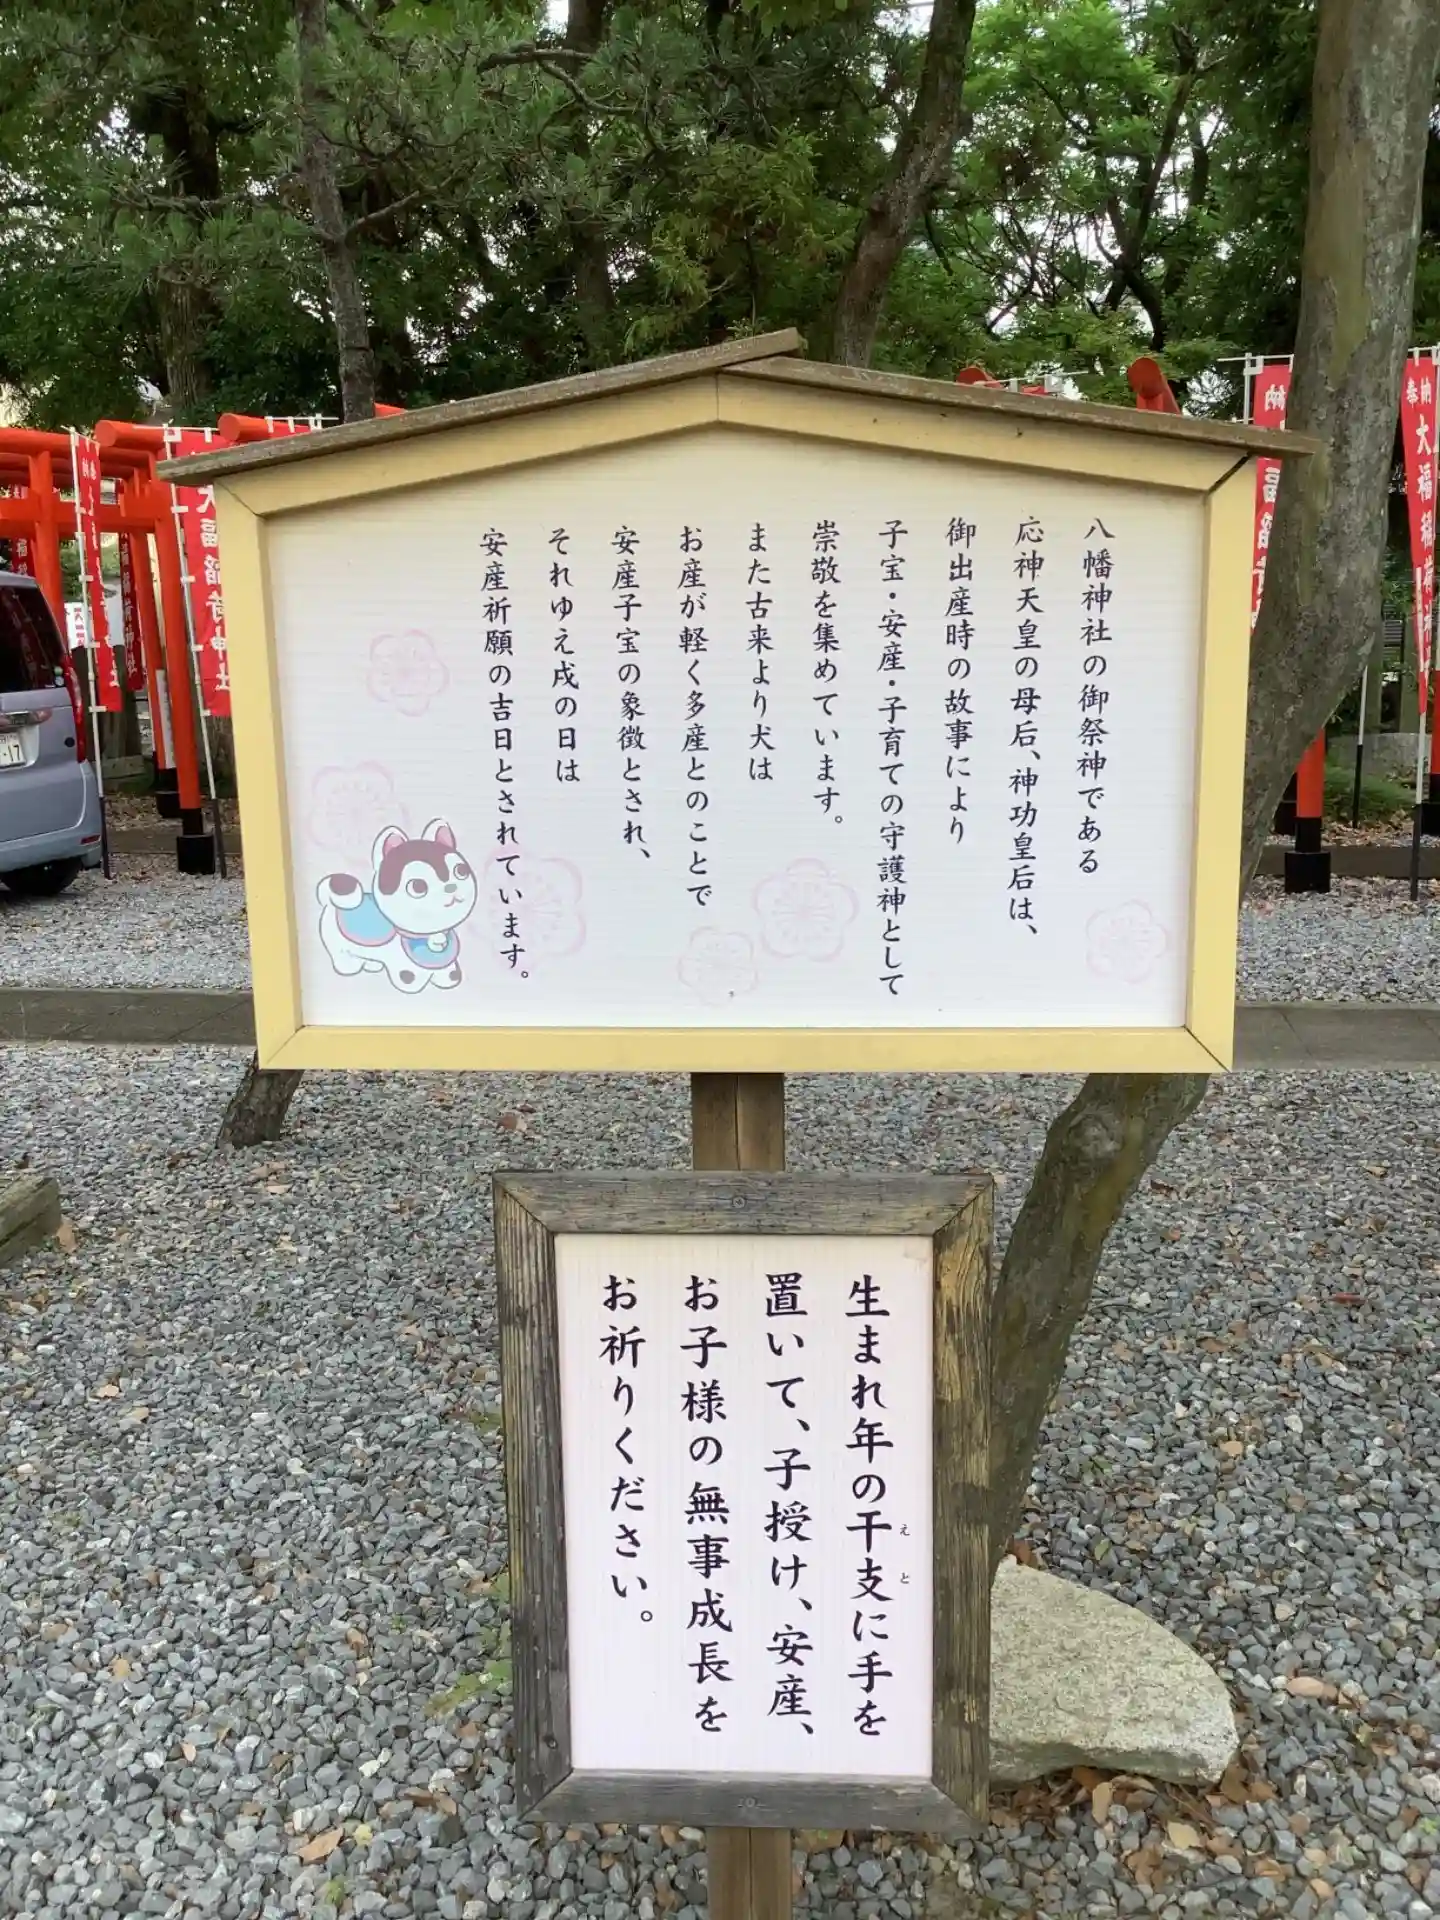 八幡神社の御祭神である
応神天皇の母后、神功皇后は、
御出産時の故事により
子宝・安産・子育ての守護神として
崇敬を集めています。
また古来より犬は
お産が軽く多産とのことで
安産子宝の象徴とされ、
それゆえ戌の日は
安産祈願の吉日とされています。
生まれ年の干支に手を
えと
置いて、子授け、安産、
お子様の無事成長を
お祈りください。
奉納 大福稲荷神社
大福稲荷神社
納
17